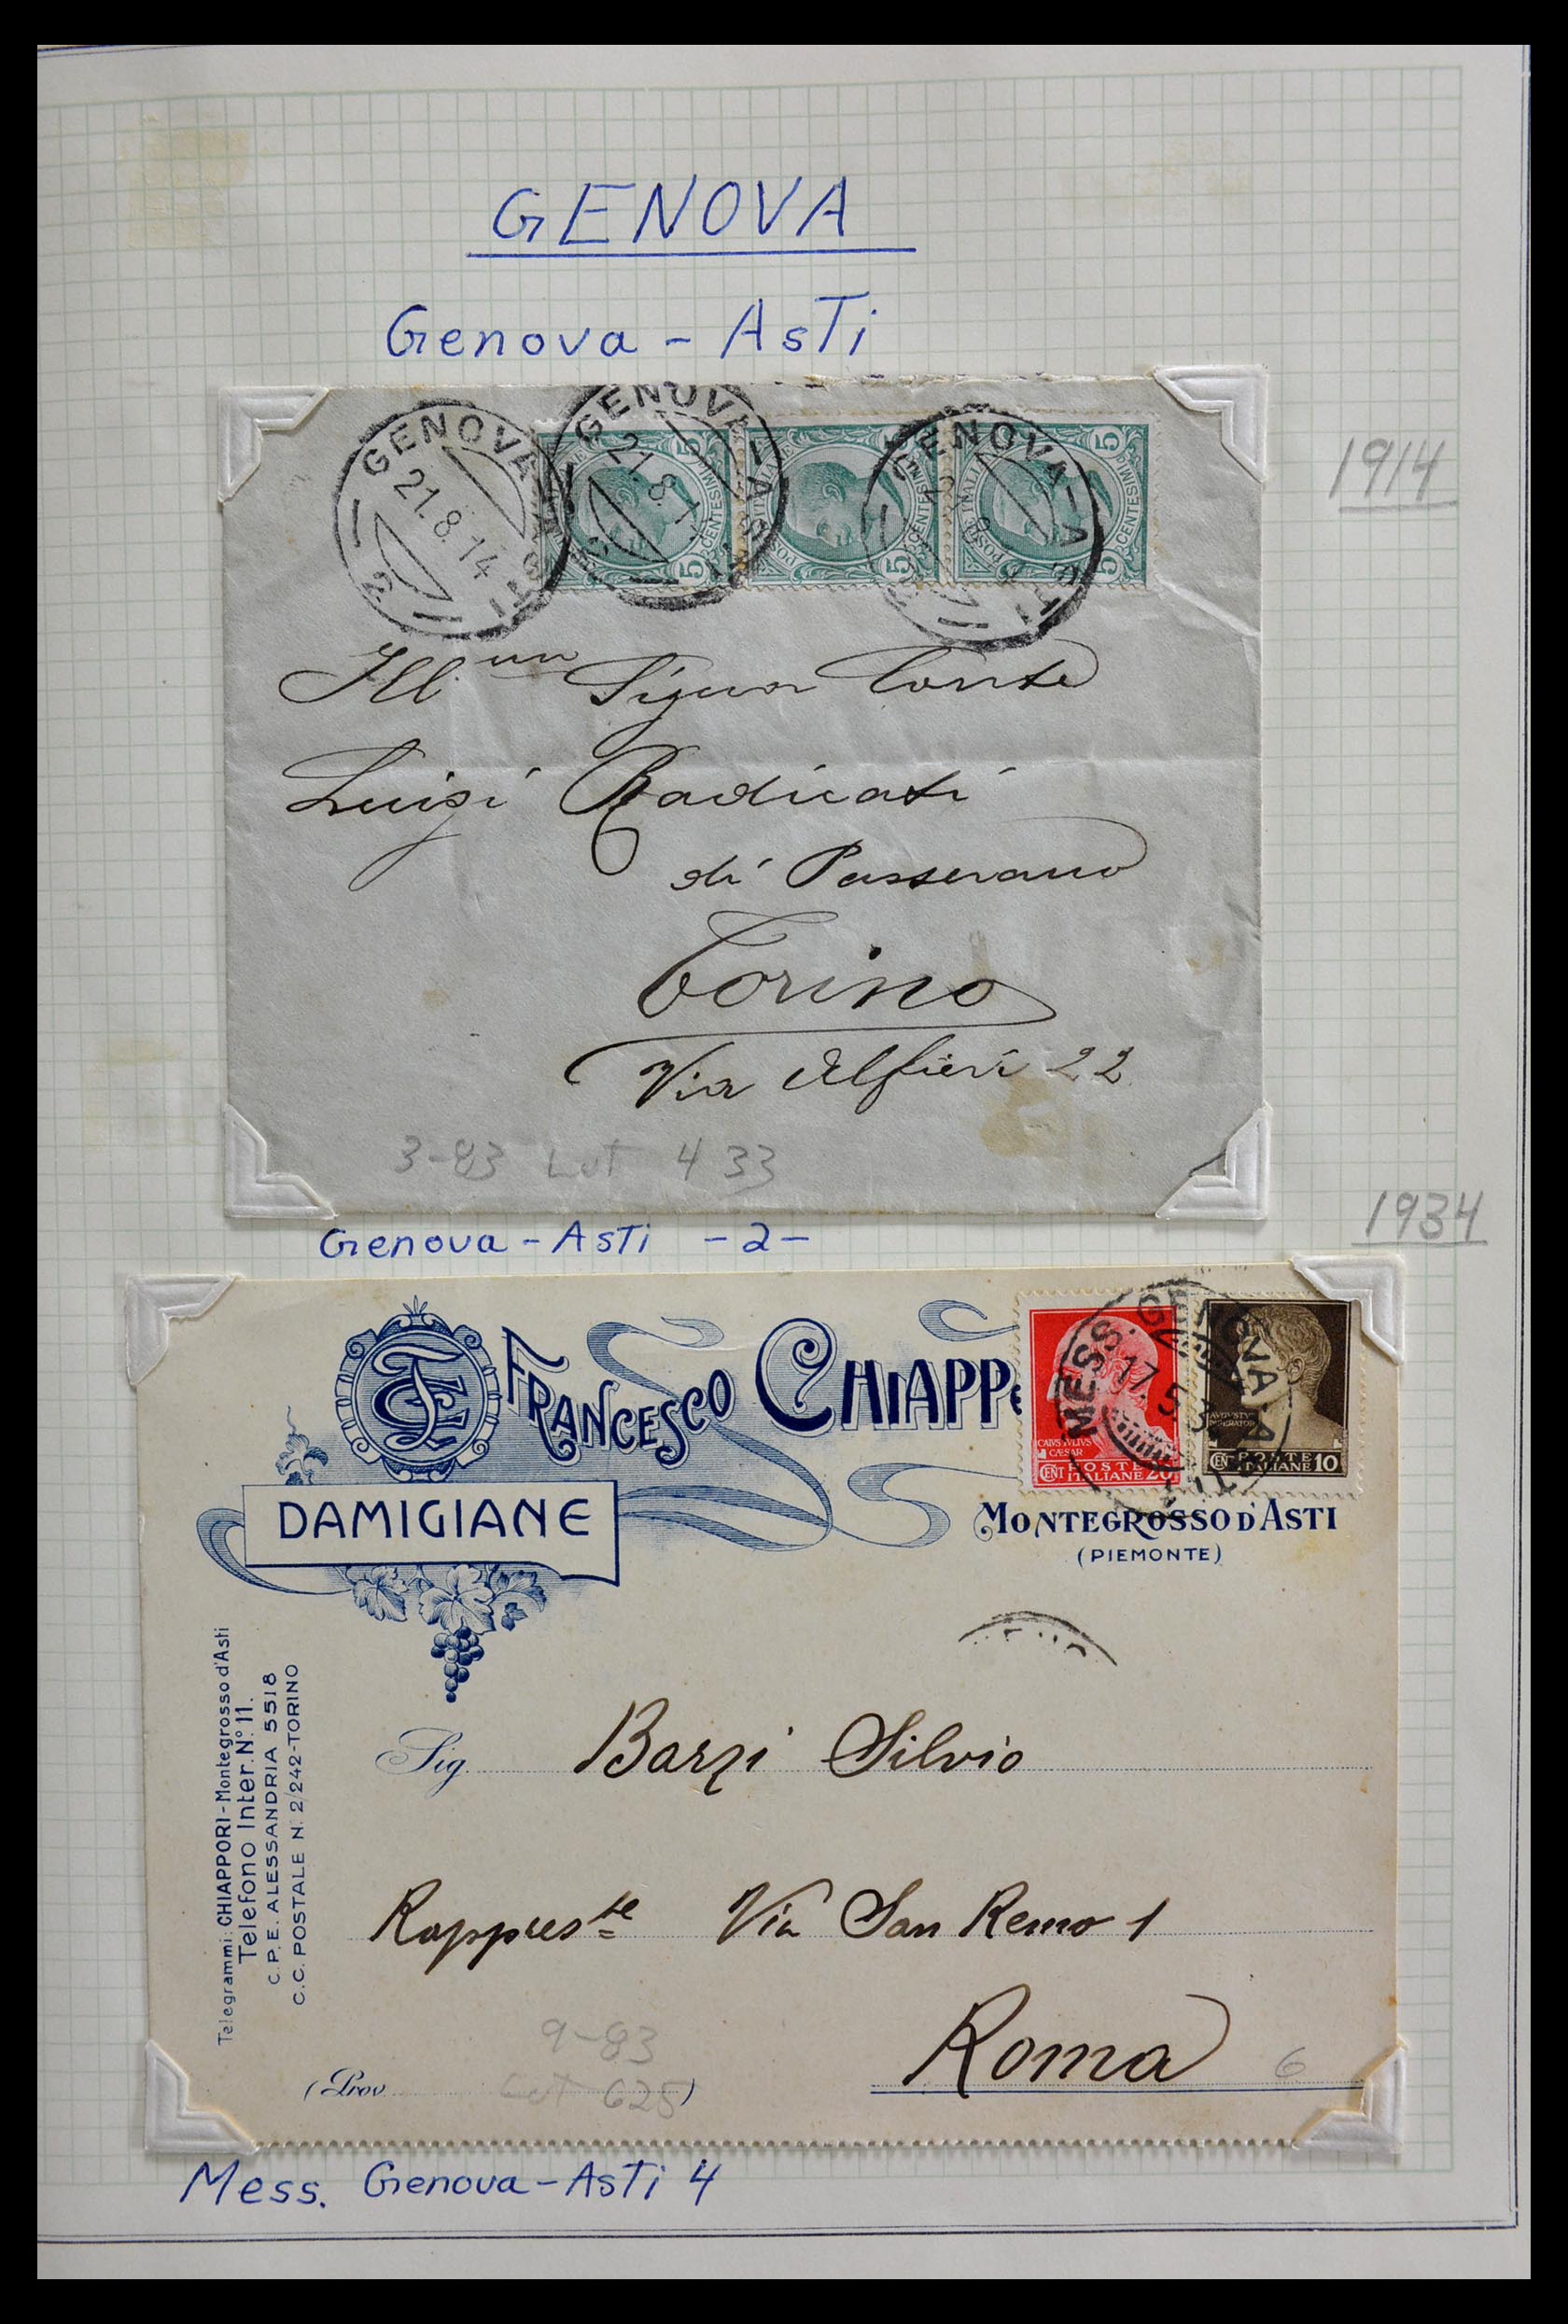 GENOVA
Genova - Asti
1914
GENOVA-ASTI
21.8.14
2
GENOVA-ASTI
21.8.1
GENOVA-ASTI
POSTE ITALIANE
CENTESIMI 5
Ill.mo Signor Conte
Luigi Radicati
di Passerano
Torino
Via Alfieri 22
3-83 Lot 433
Genova - Asti - 2 -
1934
FRANCESCO CHIAPP
DAMIGIANE
MESS. GENOVA ASTI
17.5.3
CAIVS IVLIVS
CÆSAR
CENT POSTE ITALIANE 20
AVGVSTVS
IMPERATOR
CENT POSTE ITALIANE 10
MONTEGROSSO D'ASTI
(PIEMONTE)
Telegrammi: CHIAPPORI - Montegrosso d'Asti
Telefono Inter. N° 11.
C.P.E. ALESSANDRIA 5518
C.C. POSTALE N. 2/242-TORINO
Sig. Barzi Silvio
Rappreste Via San Remo 1
Roma
9-83
Lot 625
(Prov. )
6
Mess. Genova - Asti 4